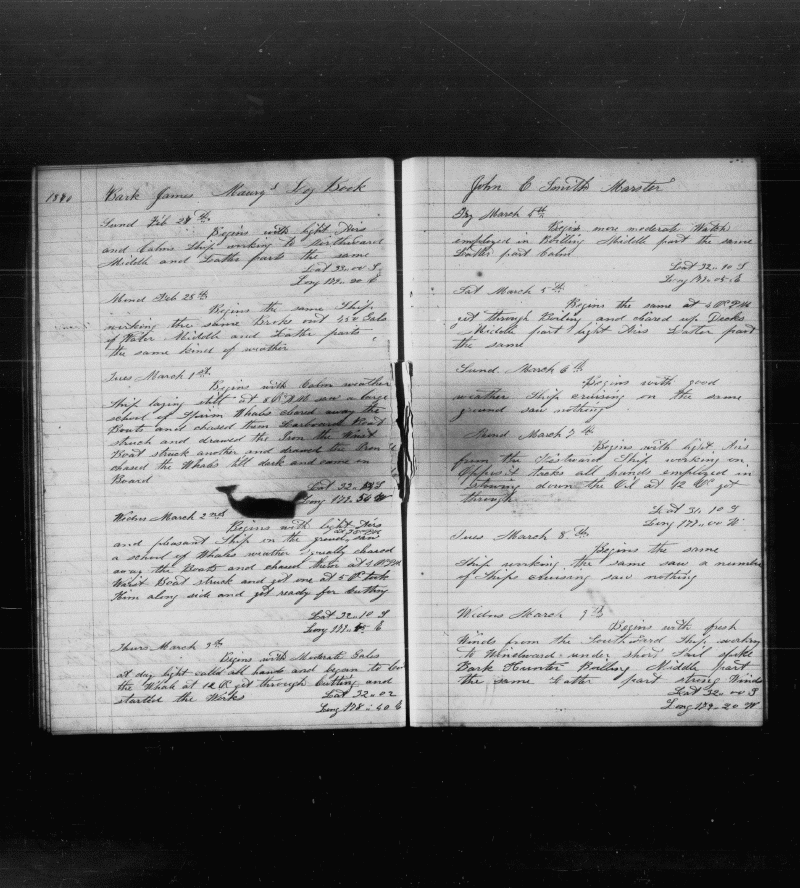 1870 Bark James Maury's Log Book
Sund Feb 27th
Begins with light Airs
and Calms Ship working to Northward
Middle and Latter parts the same
Lat 33-00 S
Long 179-20 E
Mond Feb 28th
Begins the same Ship
working the same broke out 450 Gals
of Water Middle and Latter parts
the same kind of weather
Tues March 1st
Begins with Calm weather
Ship laying still at saw a large
school of Sperm Whales clared away the
Boats and chased them Larboard Boat
struck and drawed the Iron the Waist
Boat struck another and drawed the Iron
chased the Whales till dark and came on
Board
Lat 32-
Long 179-56 W
Wedns March 2nd
Begins with light Airs
and pleasant Ship on the ground saw
a school of Whales weather chased
away the Boats and chased them at 4 PM
Waist Boat struck and got one at 5 PM took
Him along side and got ready for Cutting
Lat 32-10 S
Long E
Thurs March 3rd
Begins with Moderate Gales
at day light called all hands and began to Cut
the Whale at 12 got through Cutting and
started the Works
Lat 32-02
Long 178-40 E
John C Smith Marster
Fry March 4th
Begins more moderate Watch
employed in Boiling Middle part the same
Latter part Calm
Lat 32-10 S
Long E
Sat March 5th
Begins the same at 4 PM
got through Boiling and clared up Decks
Middle part light Airs Latter part
the same
Sund March 6th
Begins with good
weather Ship cruising on the same
ground saw nothing
Mond March 7th
Begins with light Airs
from the Ship working on
Opposit tacks all hands employed in
stowing down the Oil at 12 got
through
Lat 31-10 S
Long 179-00 W
Tues March 8th
Begins the same
Ship working the same saw a number
of Ships cruising saw nothing
Wedns March 9th
Begins with fresh
Winds from the Southward Ship working
to Windward under short Sail spoke
Bark Hunter Boiling Middle part
the same Latter part strong Winds
Lat 32-00 S
Long 179-20 W